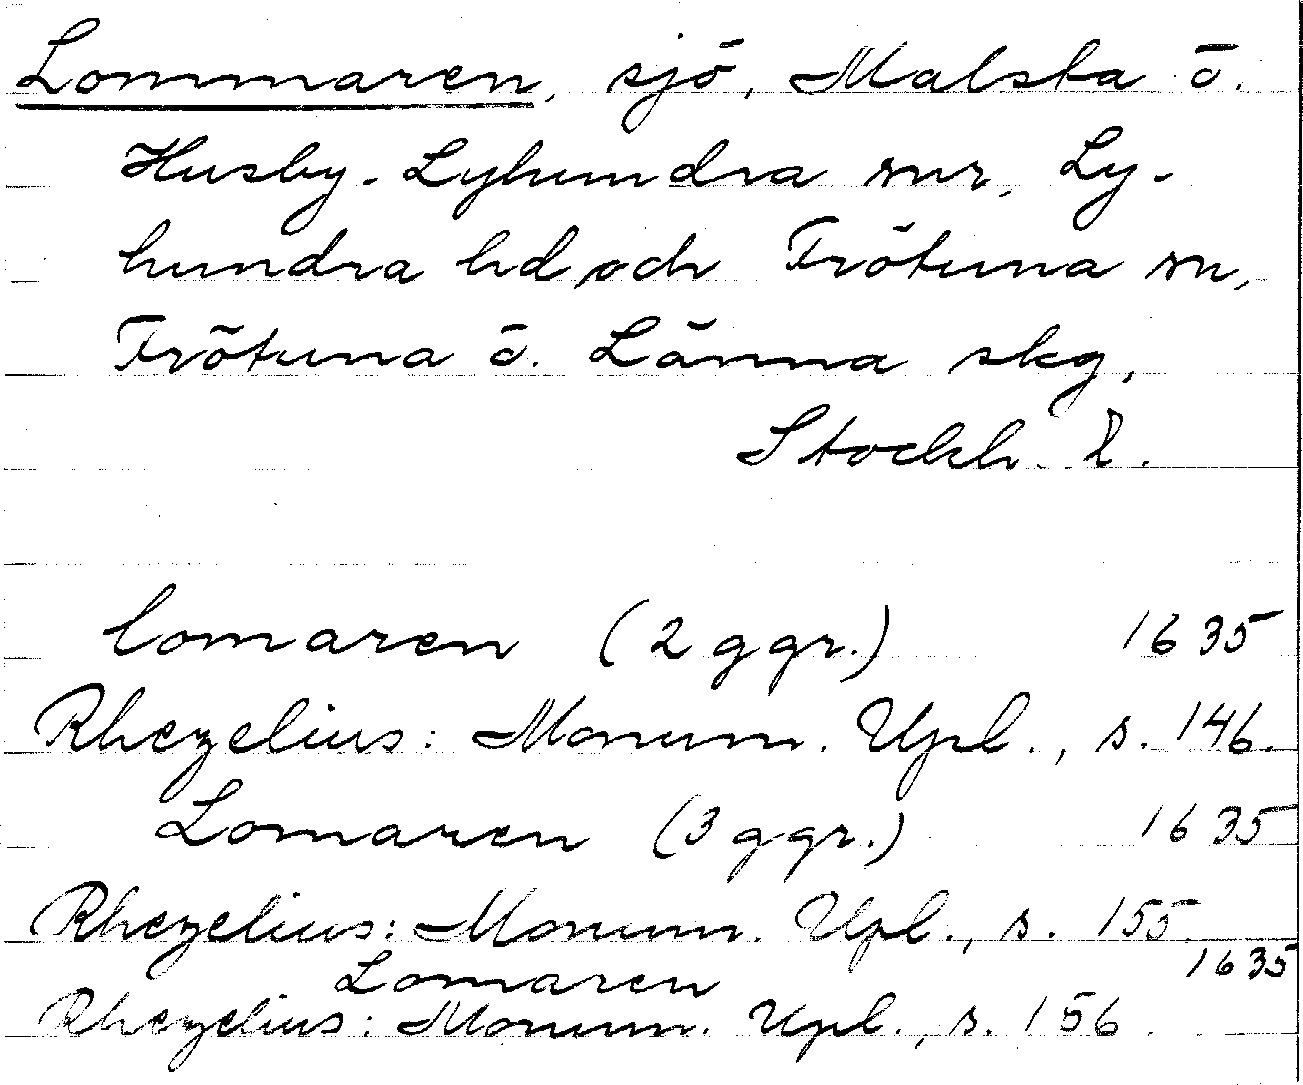 Lommaren, sjö, Malsta o.
Husby-Lyhundra snr, Ly-
hundra hd, och Frötuna sn,
Frötuna o. Länna skg,
Stockh. l.
lomaren (2 ggr.) 1635
Rhezelius: Monum. Upl., s. 146.
Lomaren (3 ggr.) 1635
Rhezelius: Monum. Upl., s. 155.
Lomaren 1635
Rhezelius: Monum. Upl., s. 156.